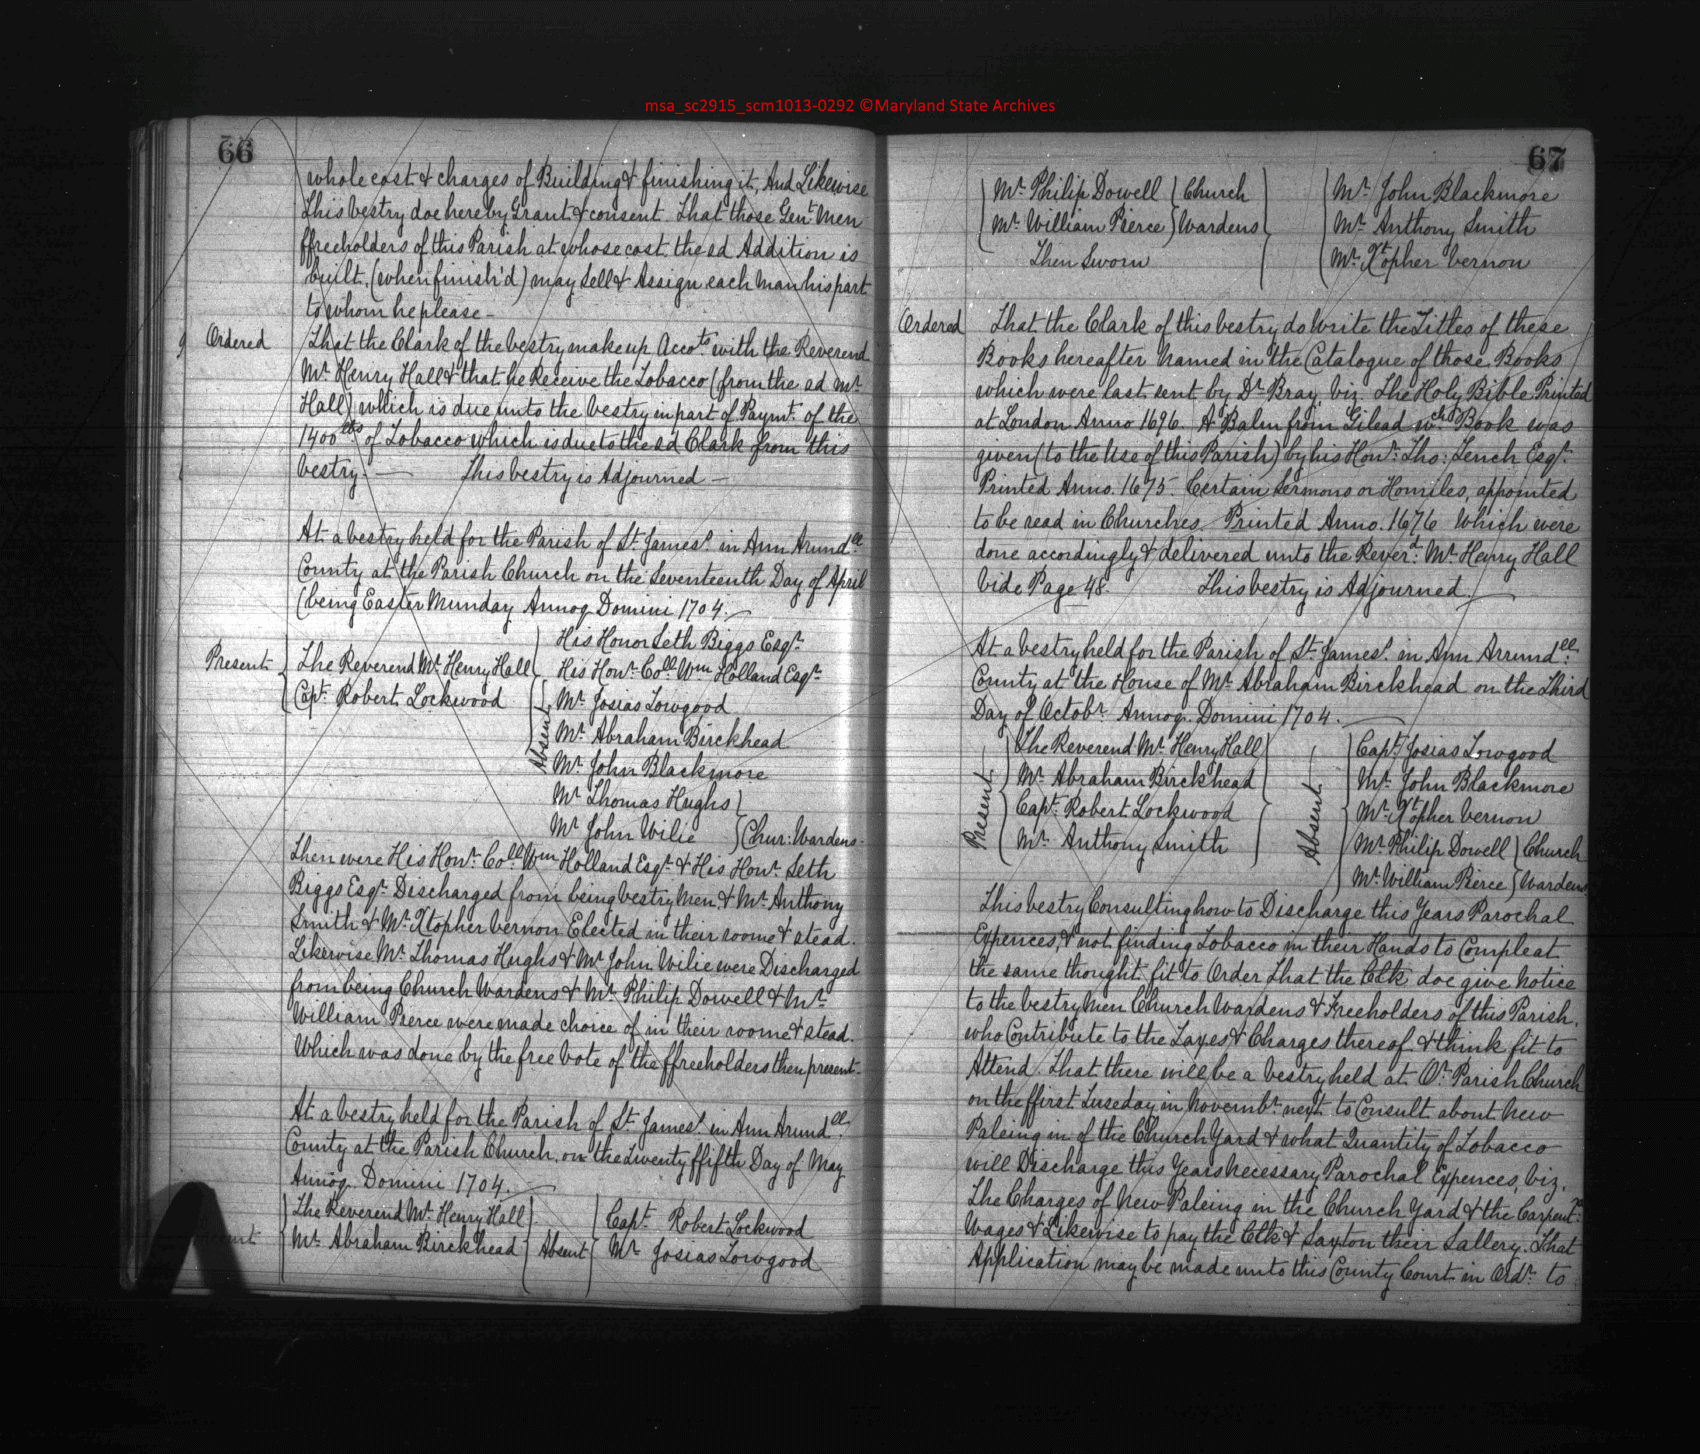 msa_sc2915_scm1013-0292 ©Maryland State Archives
66
whole cost & charges of Building & finishing it, And Likewise
This Vestry doe hereby Grant & consent That those Gent. Men
ffreeholders of this Parish at whose cost the sd Addition is
built, (when finish'd) may Sell & Assign each man his part
to whom he please –
Ordered That the Clark of the Vestry make up Accots with the Reverend
Mr. Henry Hall & that he Receive the Tobacco (from the sd Mr.
Hall) which is due unto the Vestry in part of Paymt. of the
1400 lbs of Tobacco which is due to the sd Clark from this
Vestry. — This Vestry is Adjourned —
At a Vestry held for the Parish of St. James's in Ann Arundll.
County at the Parish Church on the Seventeenth Day of April
(being Easter Munday Annoq. Domini 1704. —
Present
The Reverend Mr. Henry Hall
Capt. Robert Lockwood
Absent
His Honor Seth Biggs Esqr.
His Honr. Coll. Wm Holland Esqr.
Mr. Josias Towgood
Mr. Abraham Birckhead
Mr. John Blackmore
Mr. Thomas Hughs
Mr. John Wilie
Chur: Wardens.
Then were His Honr. Coll. Wm Holland Esqr. & His Honr. Seth
Biggs Esqr. Discharged from being Vestry Men, & Mr. Anthony
Smith & Mr. Xtopher Vernon Elected in their roome & stead.
Likewise Mr. Thomas Hughs & Mr. John Wilie were Discharged
from being Church Wardens & Mr. Philip Dowell & Mr.
William Pierce were made choice of in their roome & stead.
Which was done by the free Vote of the ffreeholders then present.
At a Vestry held for the Parish of St. James's in Ann Arundll.
County at the Parish Church, on the Twenty ffifth Day of May
Annoq. Domini 1704. —
The Reverend Mr. Henry Hall
Mr. Abraham Birckhead
Absent
Capt. Robert Lockwood
Mr. Josias Towgood
67
Mr. Philip Dowell
Mr. William Pierce
Church
Wardens
Then Sworn
Mr. John Blackmore
Mr. Anthony Smith
Mr. Xtopher Vernon
Ordered That the Clark of this Vestry do Write the Titles of these
Books hereafter Named in the Catalogue of those Books
which were last sent by Dr. Bray, Viz. The Holy Bible Printed
at London Anno 1696. A Balm from Gilead wch. Book was
given (to the Use of this Parish) by his Honr: Tho: Tench Esqr.
Printed Anno. 1675. Certain Sermons or Homiles, appointed
to be read in Churches Printed Anno. 1676 Which were
done accordingly & delivered unto the Reverd. Mr. Henry Hall
Vide Page 48. This Vestry is Adjourned. —
At a Vestry held for the Parish of St. James's in Ann Arrundell.
County at the House of Mr. Abraham Birckhead on the Third
Day of Octobr. Annoq. Domini 1704. —
Present
The Reverend Mr. Henry Hall
Mr. Abraham Birckhead
Capt. Robert Lockwood
Mr. Anthony Smith
Absent
Capt. Josias Towgood
Mr. John Blackmore
Mr. Xtopher Vernon
Mr. Philip Dowell
Mr. William Pierce
Church
Wardens
This Vestry Consulting how to Discharge this Years Parochal
Expences, & not finding Tobacco in their Hands to Compleat
the same thought fit to Order That the Clk doe give Notice
to the Vestry Men Church Wardens & Freeholders of this Parish,
who Contribute to the Taxes & Charges thereof & think fit to
Attend. That there will be a Vestry held at Or. Parish Church
on the ffirst Tuseday in Novembr. next to Consult about New
Paleing in of the Church Yard & what Quantity of Tobacco
will Discharge this Years Necessary Parochal Expences, Viz.
The Charges of New Paleing in the Church Yard & the Carpentrs.
Wages & Likewise to pay the Clk & Saxton their Sallery. That
Application may be made unto this County Court in Ordr. to